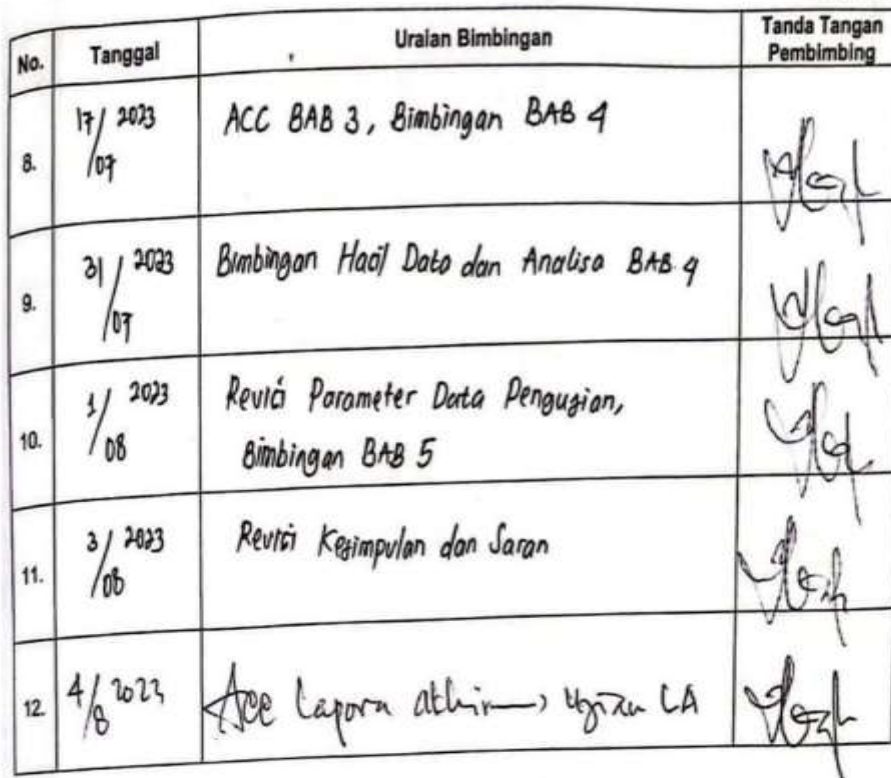 No. Tanggal Uraian Bimbingan Tanda Tangan Pembimbing
8. 17/07 2023 ACC BAB 3, Bimbingan BAB 4
9. 31/07 2023 Bimbingan Hasil Data dan Analisa BAB 4
10. 1/08 2023 Revisi Parameter Data Pengujian,
Bimbingan BAB 5
11. 3/08 2023 Revisi Kesimpulan dan Saran
12. 4/8 2023 Acc Laporan akhir → LA